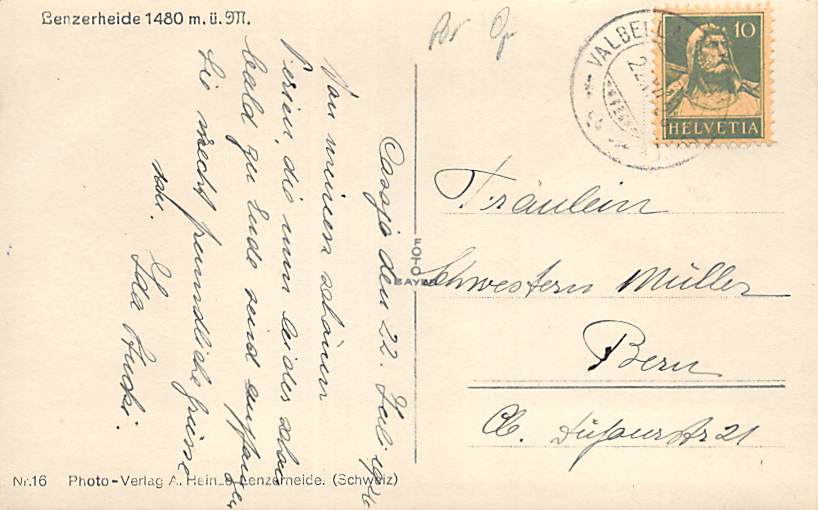 Lenzerheide 1480 m. ü. M.
VALBELLA
10
HELVETIA
den 22. Juli 1926
Von meinen schönen
Ferien, die nun leider schon
bald zu Ende sind empfangen
Sie recht freundliche Grüsse
Ida Stucki.
FOTO
Fräulein
Schwestern Müller
Bern
Dufourstr 21
Nr. 16 Photo-Verlag A. Lenzerheide. (Schweiz)